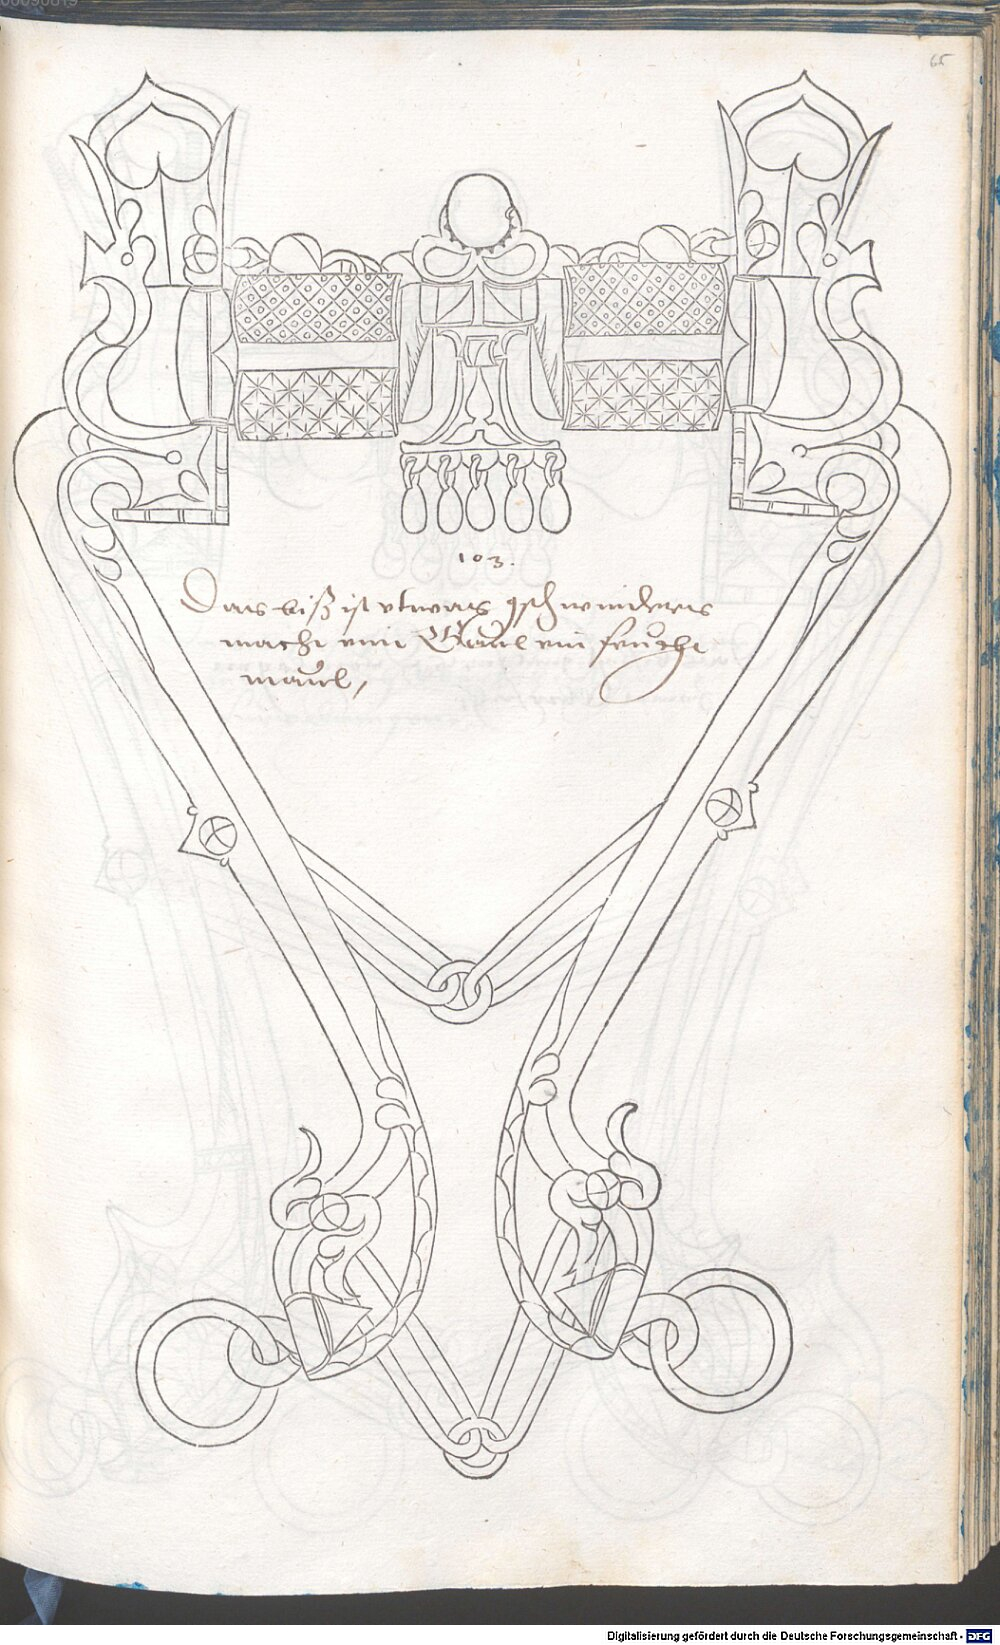 65
103.
Das biß ist etwas gschwinders
macht eim Gaul ein feücht
maul,
Digitalisierung gefördert durch die Deutsche Forschungsgemeinschaft - DFG